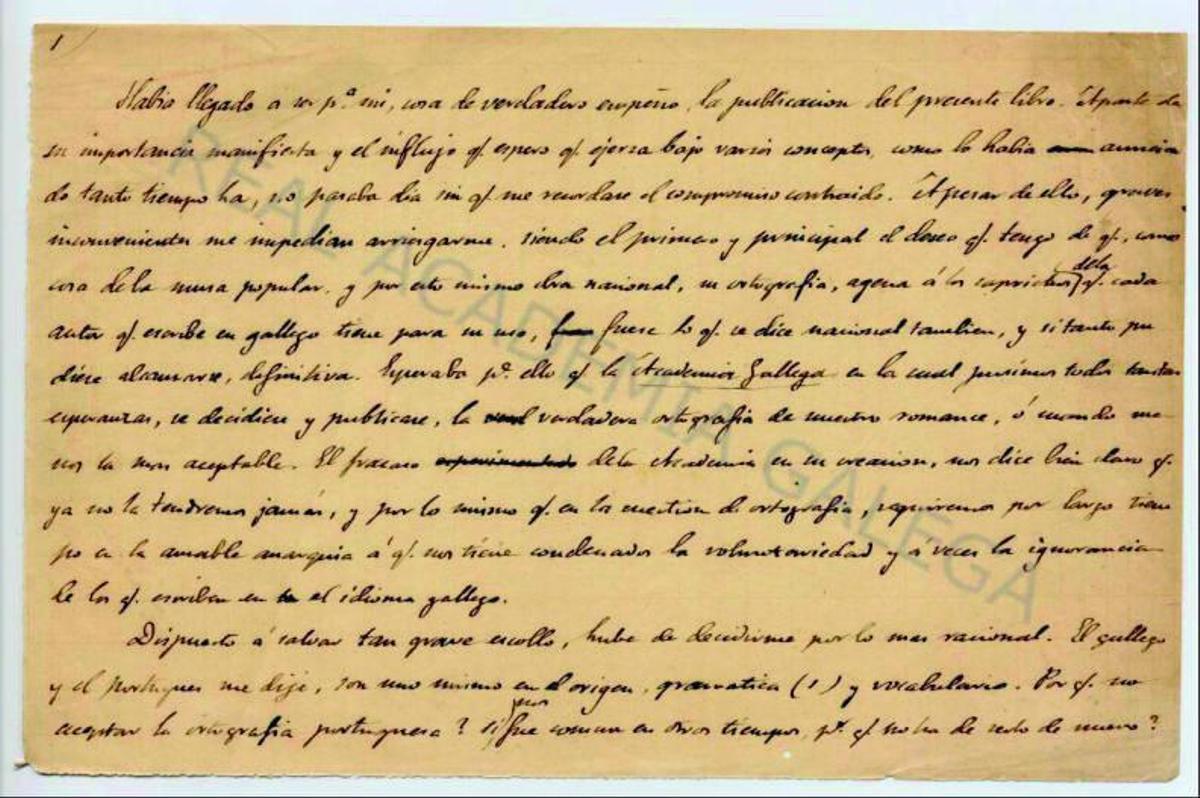 1
Habia llegado a ser pª mi, cosa de verdadero empeño, la publicacion del presente libro. Aparte de
su importancia manifiesta y el influjo q. espero q. ejerza bajo varios conceptos, como lo habia anuncia
do tanto tiempo ha, no pasaba dia sin q. me recordase el compromiso contraido. Apesar de ello, graves
inconvenientes me impedian arriesgarme, siendo el primero y principal el deseo q. tengo de q., como
cosa de la musa popular, y por esto mismo obra nacional, su ortografia, agena á los caprichos de la q. cada
autor q. escribe en gallego tiene para su uso, fuese lo q. se dice nacional tambien, y si tanto pu
diese alcanzarse, definitiva. Esperaba pº ello q. la Academia Gallega en la cual pusimos todos tantas
esperanzas, se decidiese y publicase, la verdadera ortografia de nuestro romance, ó cuando me
nos la mas aceptable. El fracaso de la Academia en su creacion, nos dice bien claro q.
ya no la tendremos jamás, y por lo mismo q. en la cuestion de ortografia, seguiremos por largo tiem
po en la amable anarquia á q. nos tiene condenados la voluntariedad y á veces la ignorancia
de los q. escriben en el idioma gallego.
Dispuesto á salvar tan grave escollo, hube de decidirme por lo mas racional. El gallego
y el portugues me dije, son uno mismo en el origen, gramatica (1) y vocabulario. Por q. no
aceptar la ortografia portuguesa? Si nos fue comun en otros tiempos, pr. q. no ha de serlo de nuevo?
REAL ACADEMIA GALEGA